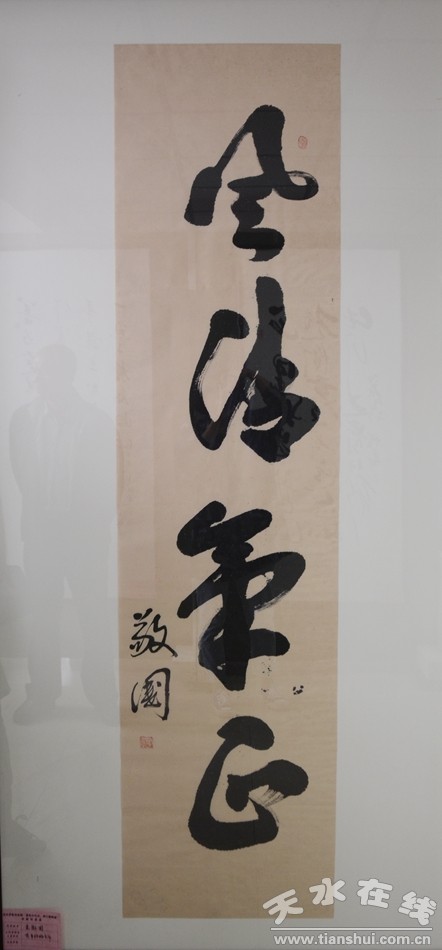 风清气正
敬国
天水在线
www.tianshui.com.cn